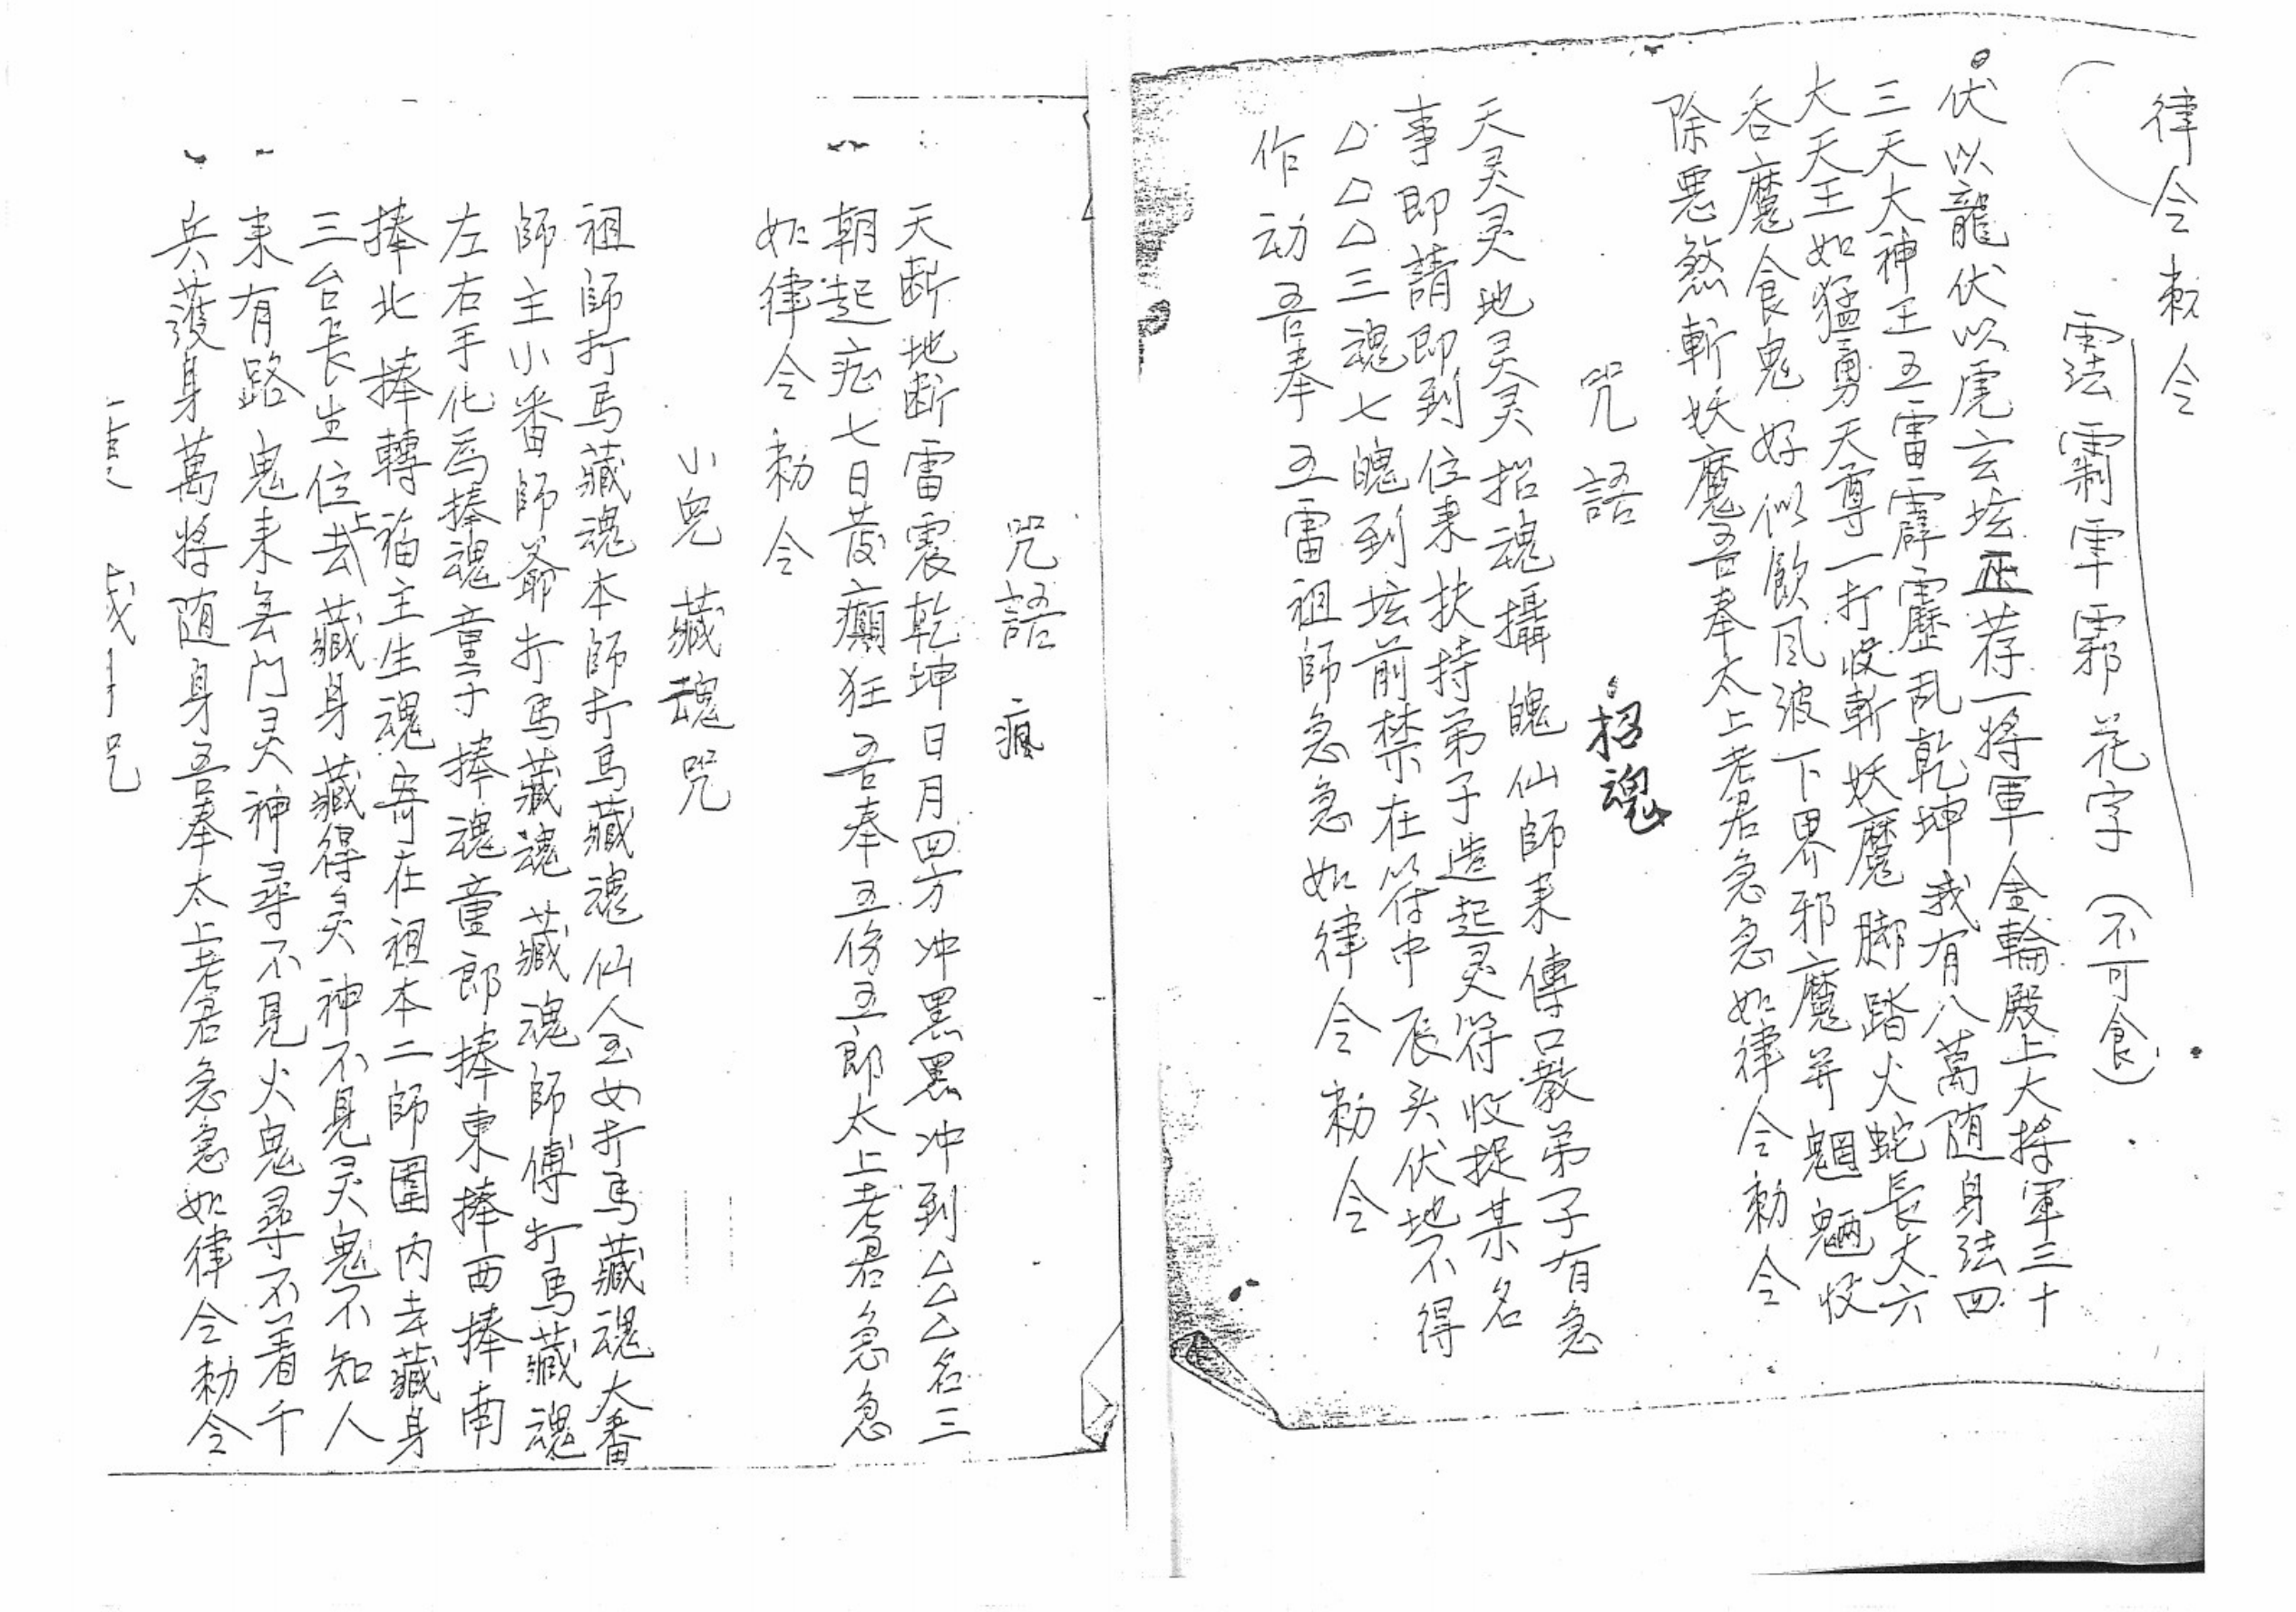 律令敕令
霐 霌 䨑 霩 花字（不可食）
伏以龍伏以虎玄坛正荐一將軍金輪殿上大將軍三十
三天大神王五雷霹靂乱乾坤我有八萬随身法四
大天王如猛勇天尊一打收斬妖魔脚踏火蛇長大六
吞魔食鬼好似飲风波下界邪魔并魍魎收
除惡煞斬妖魔吾奉太上老君急急如律令勅令
咒語 招魂
天灵灵地灵灵招魂攝魄仙師来傳口教弟子有急
事即請即到位来扶持弟子造起灵符收捉某名
△△△三魂七魄到坛前禁在符中辰头伏地不得
作动吾奉五雷祖師急急如律令勅令
咒語 瘋
天断地断雷震乾坤日月四方冲黑黑冲到△△△名三
朝起症七日發癲狂吾奉五傷五郎太上老君急急
如律令勅令
小兒藏魂咒
祖師打馬藏魂本師打馬藏魂仙人玉女打馬藏魂大番
師主小番師爺打馬藏魂藏魂師傅打馬藏魂
左右手化為捧魂童子捧魂童郎捧東捧西捧南
捧北捧轉福主生魂寄在祖本二師圍内去藏身
三台長生位上去藏身藏得灵神不見灵鬼不知人
来有路鬼来無門灵神尋不見火鬼尋不着千
兵護身萬將随身吾奉太上老君急急如律令勅令